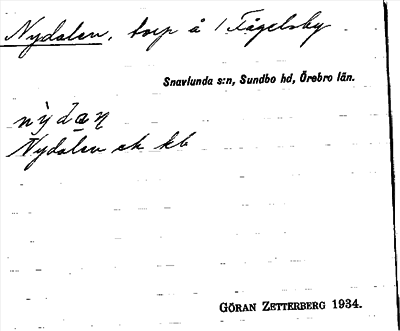 Nydalen, torp å 1 Fågelsby
Snavlunda s:n, Sundbo hd, Örebro län.
nỳdan
Nydalen ek kb
GÖRAN ZETTERBERG 1934.